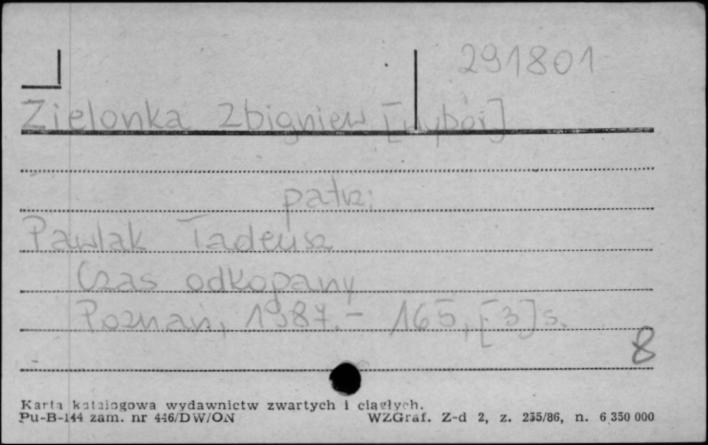 291801
Zielonka Zbigniew [wybór]
patrz:
Pawlak Tadeusz
Czas odkopany
Poznań, 1987. - 165, [3] s.
8
Karta katalogowa wydawnictw zwartych i ciągłych.
Pu-B-144 zam. nr 446/DW/ON WZGraf. Z-d 2, z. 235/86, n. 6 350 000